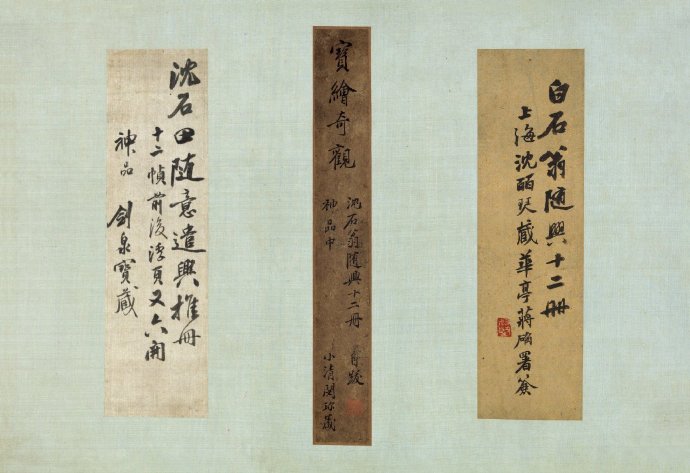 白石翁隨興十二冊
上海沈酩琴藏華亭蔣確署簽
寶繪奇觀
沈石翁隨興十二冊 自跋
神品中 小清閟珍藏
沈石田隨意遣興推冊
十二幀前後浮頁又六開
神品 劍泉寶藏